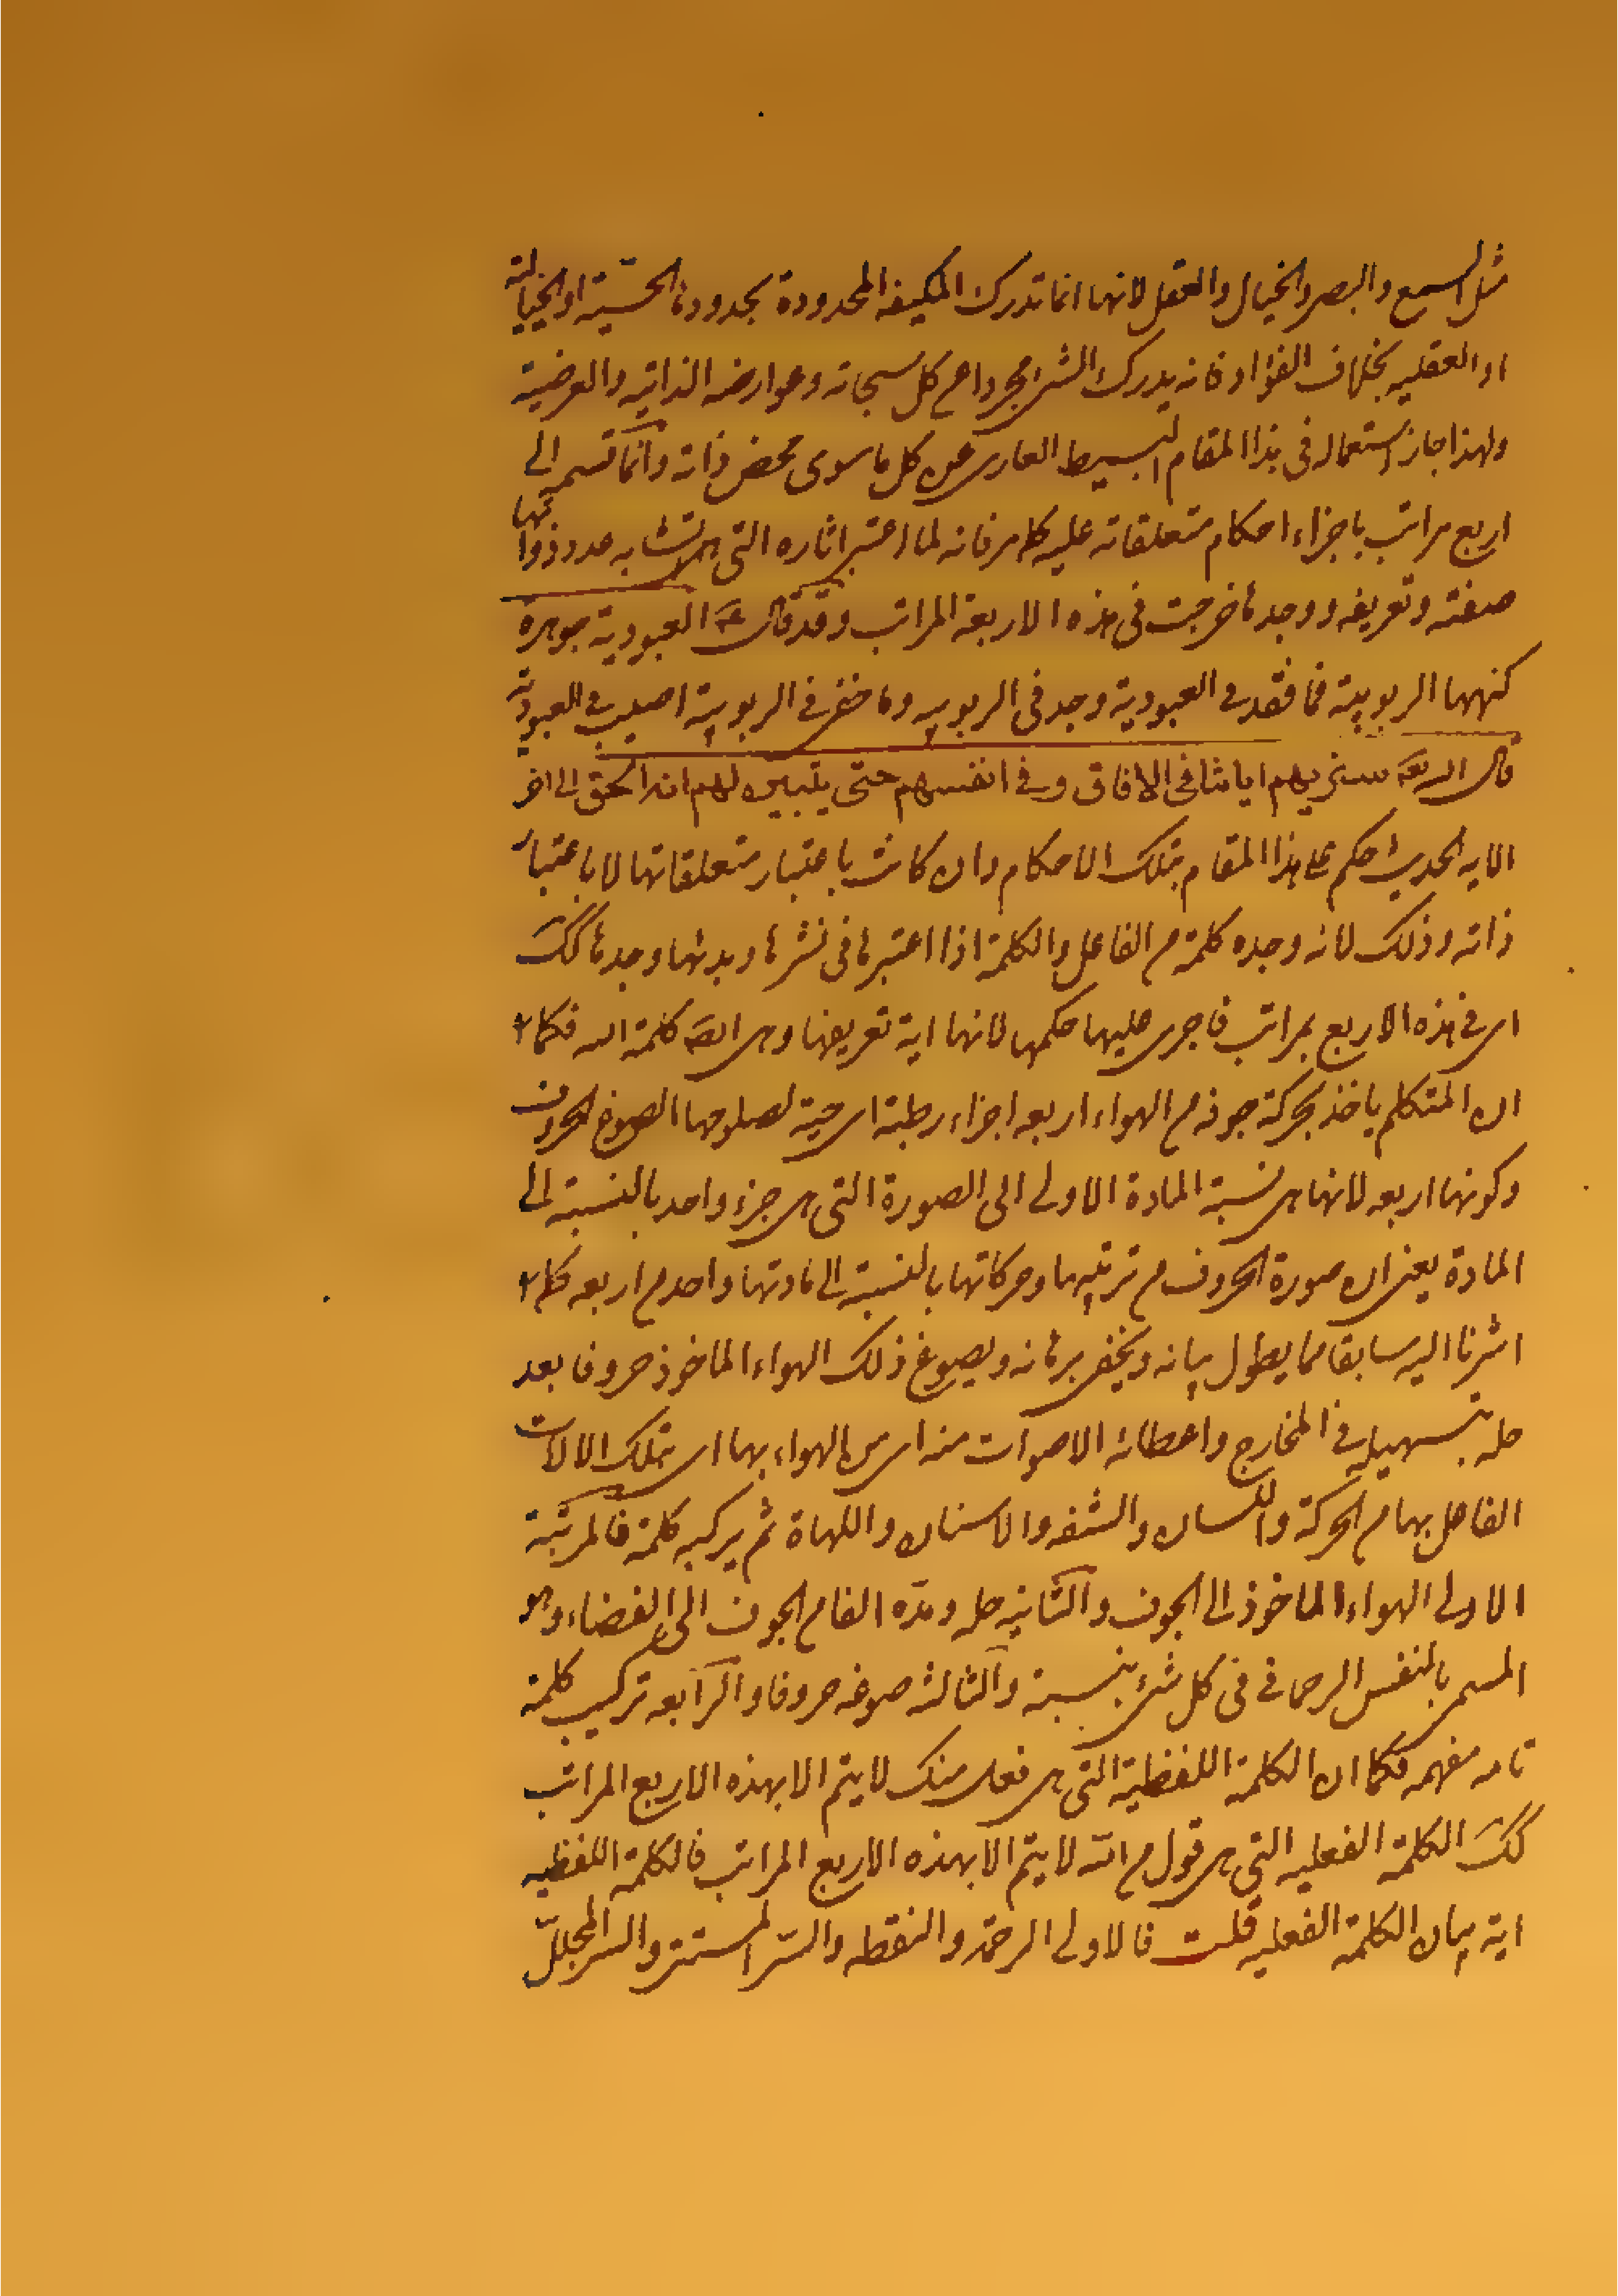 مثل السمع والبصر والخيال والعقل لانها انما تدرك المكيفه المحدودة بحدودها الحسّية او الخيالية
او العقليه بخلاف الفؤاد فانه يدرك الشئ مجردا عن كل سبحاته وعوارضه الذاتيه والعرضية
ولهذا جاز استعماله فى هذا المقام البسيط العارى عن كل ما سوى محض ذاته وانما قسم الى
اربع مراتب باجراء احكام متعلقاته عليه كما مر فانه لما اعتبر اثاره التى هى تشابه عدد ذواتها
صفته وتعريفه ووجدها خرجت فى هذه الاربعة المراتب وقد قال ع العبودية جوهرة
كنهها الربوبية فما فقد فى العبودية وجد فى الربوبيه وما خفى فى الربوبية اصيب فى العبودية
قال الله تعه سنريهم اياتنا فى الافاق وفى انفسهم حتى يتبين لهم انه الحق الى اخر
الايه الحديث حكم على هذا المقام بتلك الاحكام وان كانت باعتبار متعلقاتها لا باعتبار
ذاته وذلك لانه وجده كلمة من الفاعل والكلمة اذا اعتبرها فى نشرها وبدئها وجدها كك
اى فى هذه الاربع مراتب فاجرى عليها حكمها لانها اية تعريفها وهى ايضه كلمة الله فكما
ان المتكلم ياخذ بحركة جوفه من الهواء اربعه اجزاء رطبة اى حية لصلوحها لصوغ الحروف
وكونها اربعه لانها هى نسبة المادة الاولى الى الصورة التى هى جزء واحد بالنسبة الى
المادة يعنى ان صورة الحروف من ترتيبها وحركاتها بالنسبة الى مادتها واحد من اربعه كما
اشرنا اليه سابقا مما يطول بيانه ويخفى برهانه ويصوغ ذلك الهواء الماخوذ حروفا بعد
حله بتسهيله فى المخارج واعطائه الاصوات منه اى من الهواء بها اى بتلك الالات
الفاعل بها من الحركة واللسان والشفه والاسنان واللهاة ثم يركبه كلمة فالمرتبة
الاولى الهواء الماخوذ الى الجوف والثانيه حله ومدّه الفا من الجوف الى الفضاء وهو
المسمى بالنفس الرحمانى فى كل شئ بنسبة والثالثه صوغه حروفا والرابعه تركيب كلمة
تامه مفهمه فكما ان الكلمة اللفظية التى هى فعل منك لا يتم الا بهذه الاربع المراتب
كك الكلمة الفعليه التى هى قول من الله لا يتم الا بهذه الاربع المراتب فالكلمة اللفظيه
اية بيان الكلمة الفعليه قلت فالاولى الرحمة والنقطه والسّر المستتر والسر المجلّل